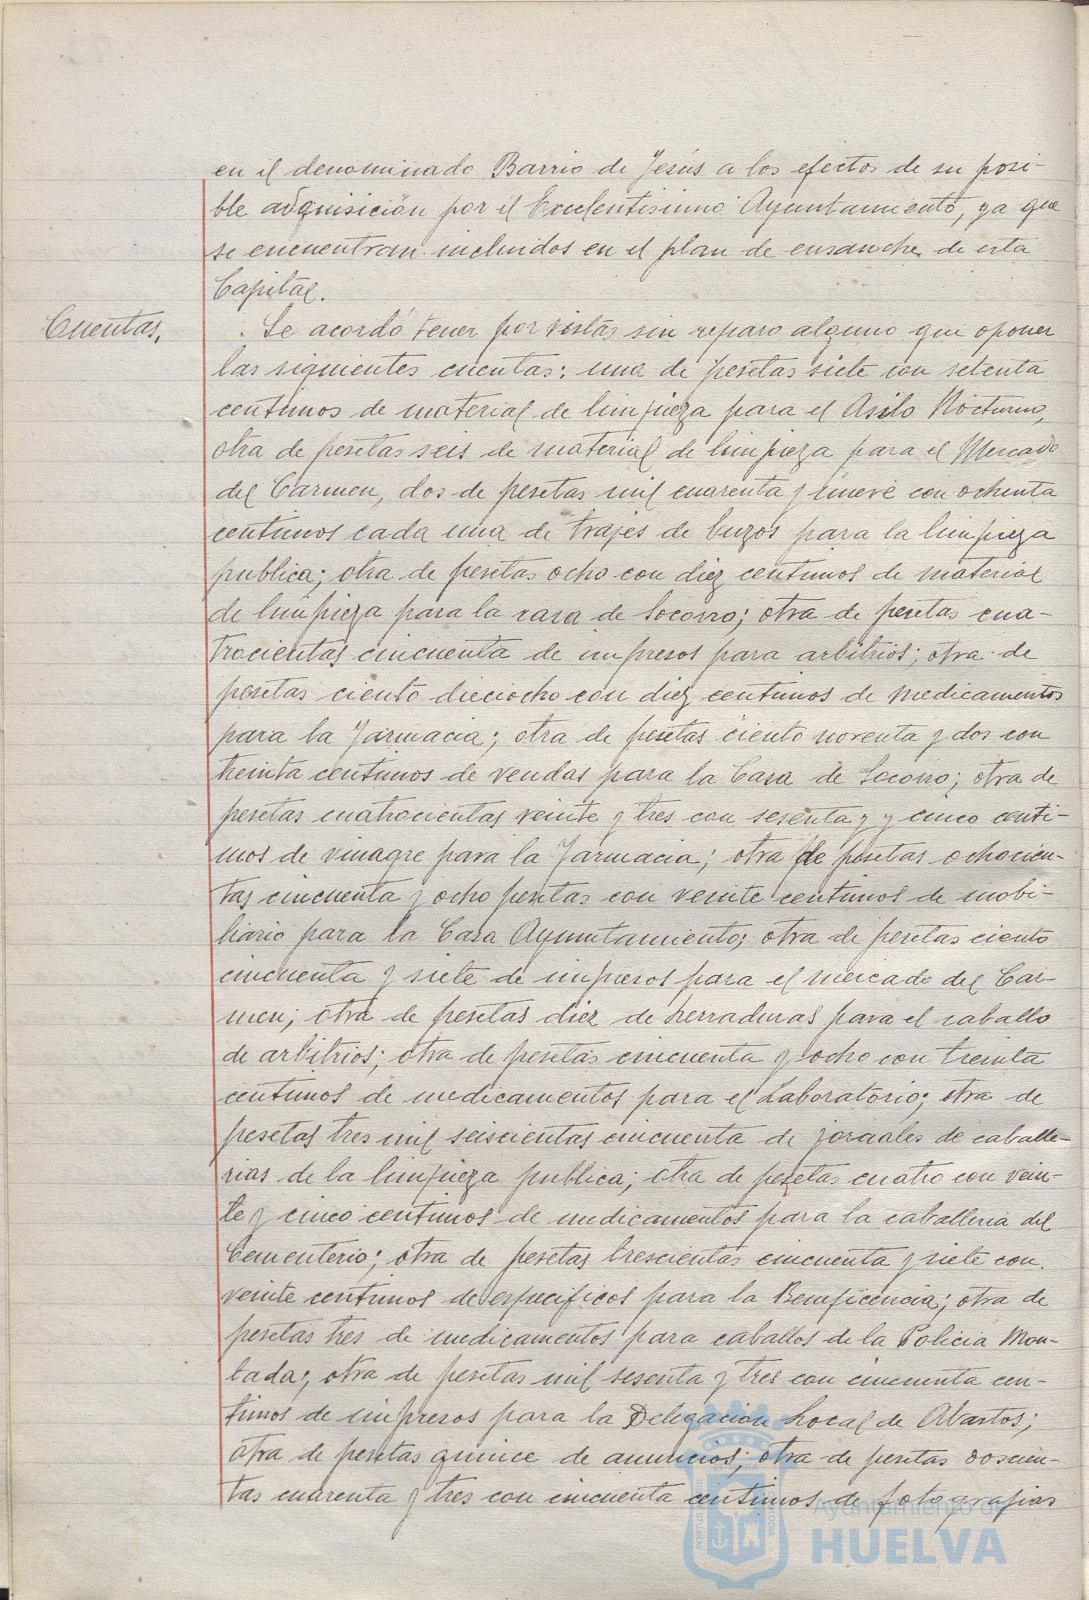 en el denominado Barrio de Jesús a los efectos de su posi-
ble adquisición por el Excelentisimo Ayuntamiento, ya que
se encuentran incluidos en el plan de ensanche de esta
Capital.
Cuentas.
Se acordó tener por vistas sin reparo alguno que oponer
las siguientes cuentas: una de pesetas siete con setenta
centimos de material de limpieza para el Asilo Nocturno,
otra de pesetas seis de material de limpieza para el Mercado
del Carmen, dos de pesetas mil cuarenta y nueve con ochenta
centimos cada una de trajes de buzos para la limpieza
publica; otra de pesetas ocho con diez centimos de material
de limpieza para la casa de Socorro; otra de pesetas cua-
trocientas cincuenta de impresos para arbitrios; otra de
pesetas ciento dieciocho con diez centimos de medicamentos
para la Farmacia; otra de pesetas ciento noventa y dos con
treinta centimos de vendas para la Casa de Socorro; otra de
pesetas cuatrocientas veinte y tres con sesenta y y cinco centi-
mos de vinagre para la Farmacia; otra de pesetas ochocien-
tas cincuenta y ocho pesetas con veinte centimos de mobi-
liario para la Casa Ayuntamiento; otra de pesetas ciento
cincuenta y siete de impresos para el mercado del Car-
men; otra de pesetas diez de herraduras para el caballo
de arbitrios; otra de pesetas cincuenta y ocho con treinta
centimos de medicamentos para el Laboratorio; otra de
pesetas tres mil seiscientas cincuenta de jornales de caballe-
rias de la limpieza publica; otra de pesetas cuatro con vein-
te y cinco centimos de medicamentos para la caballeria del
Cementerio; otra de pesetas trescientas cincuenta y siete con
veinte centimos de especificos para la Beneficencia; otra de
pesetas tres de medicamentos para caballos de la Policia Mon-
tada; otra de pesetas mil sesenta y tres con cincuenta cen-
timos de impresos para la Delegación Local de Abastos;
otra de pesetas quince de anuncios; otra de pesetas doscien-
tas cuarenta y tres con cincuenta centimos de fotografias
Ayuntamiento de
HUELVA